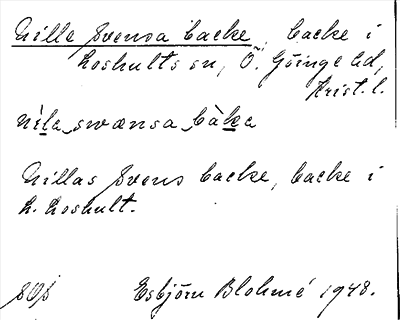 Nille Svensa backe, backe i
Loshults sn, Ö. Göinge hd,
Krist. l.
nìla swænsa bàka
Nillas Svens backe, backe i
h. Loshult.
Esbjörn Blohmé 1948.